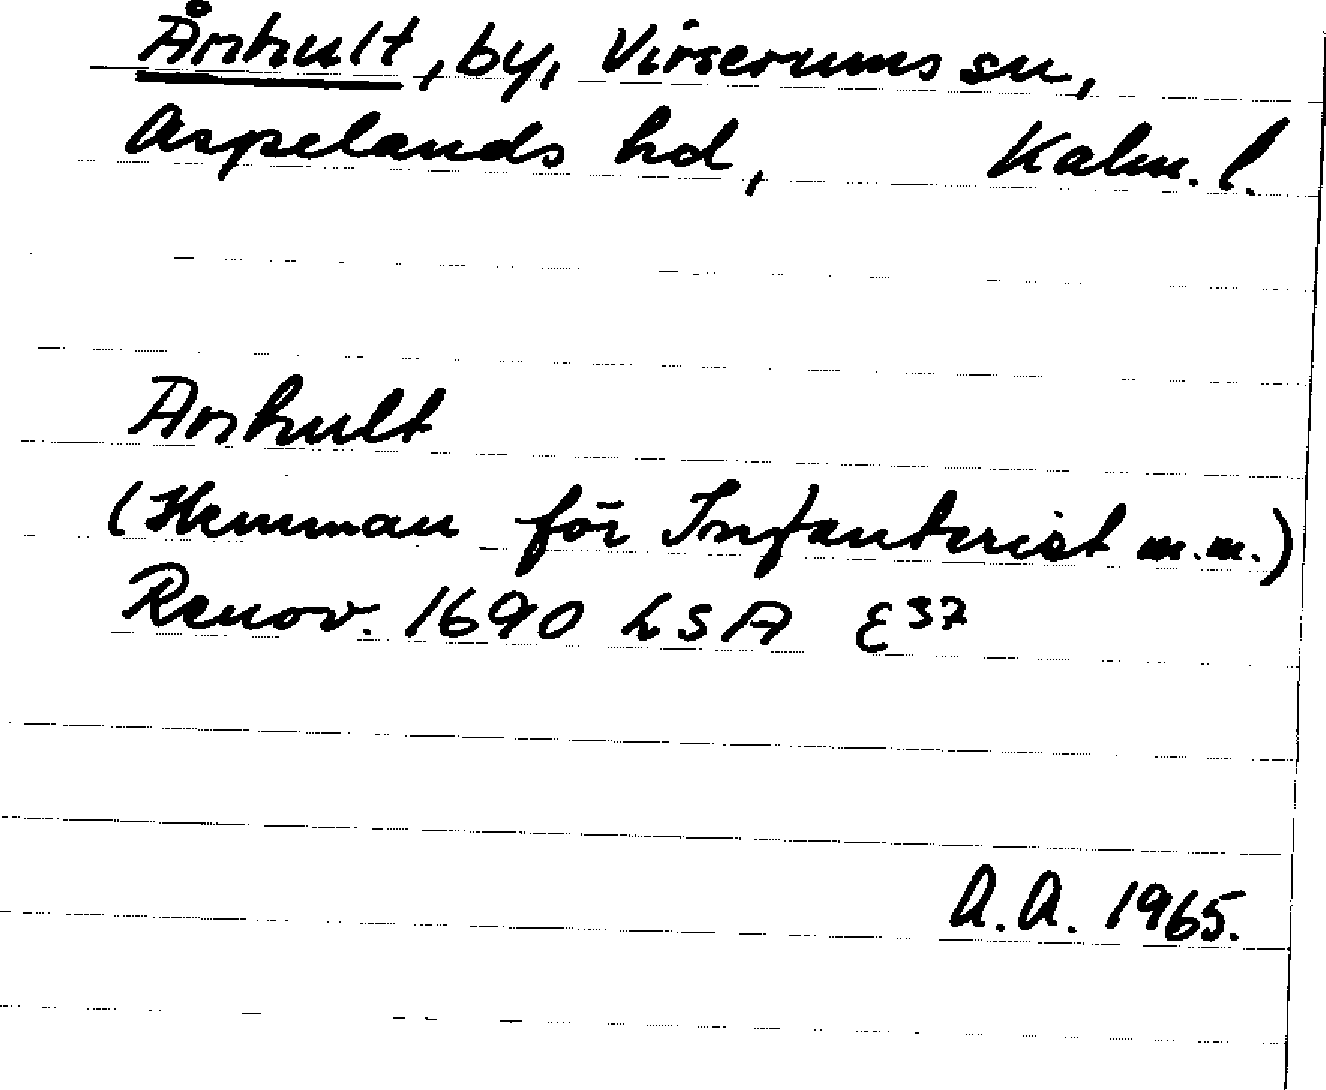 Årshult, by, Virserums sn,
Aspelands hd, Kalm. l.
Arshult
(Hemman för Infanterist m.m.)
Renov. 1690 LSA E37
A.A. 1965.